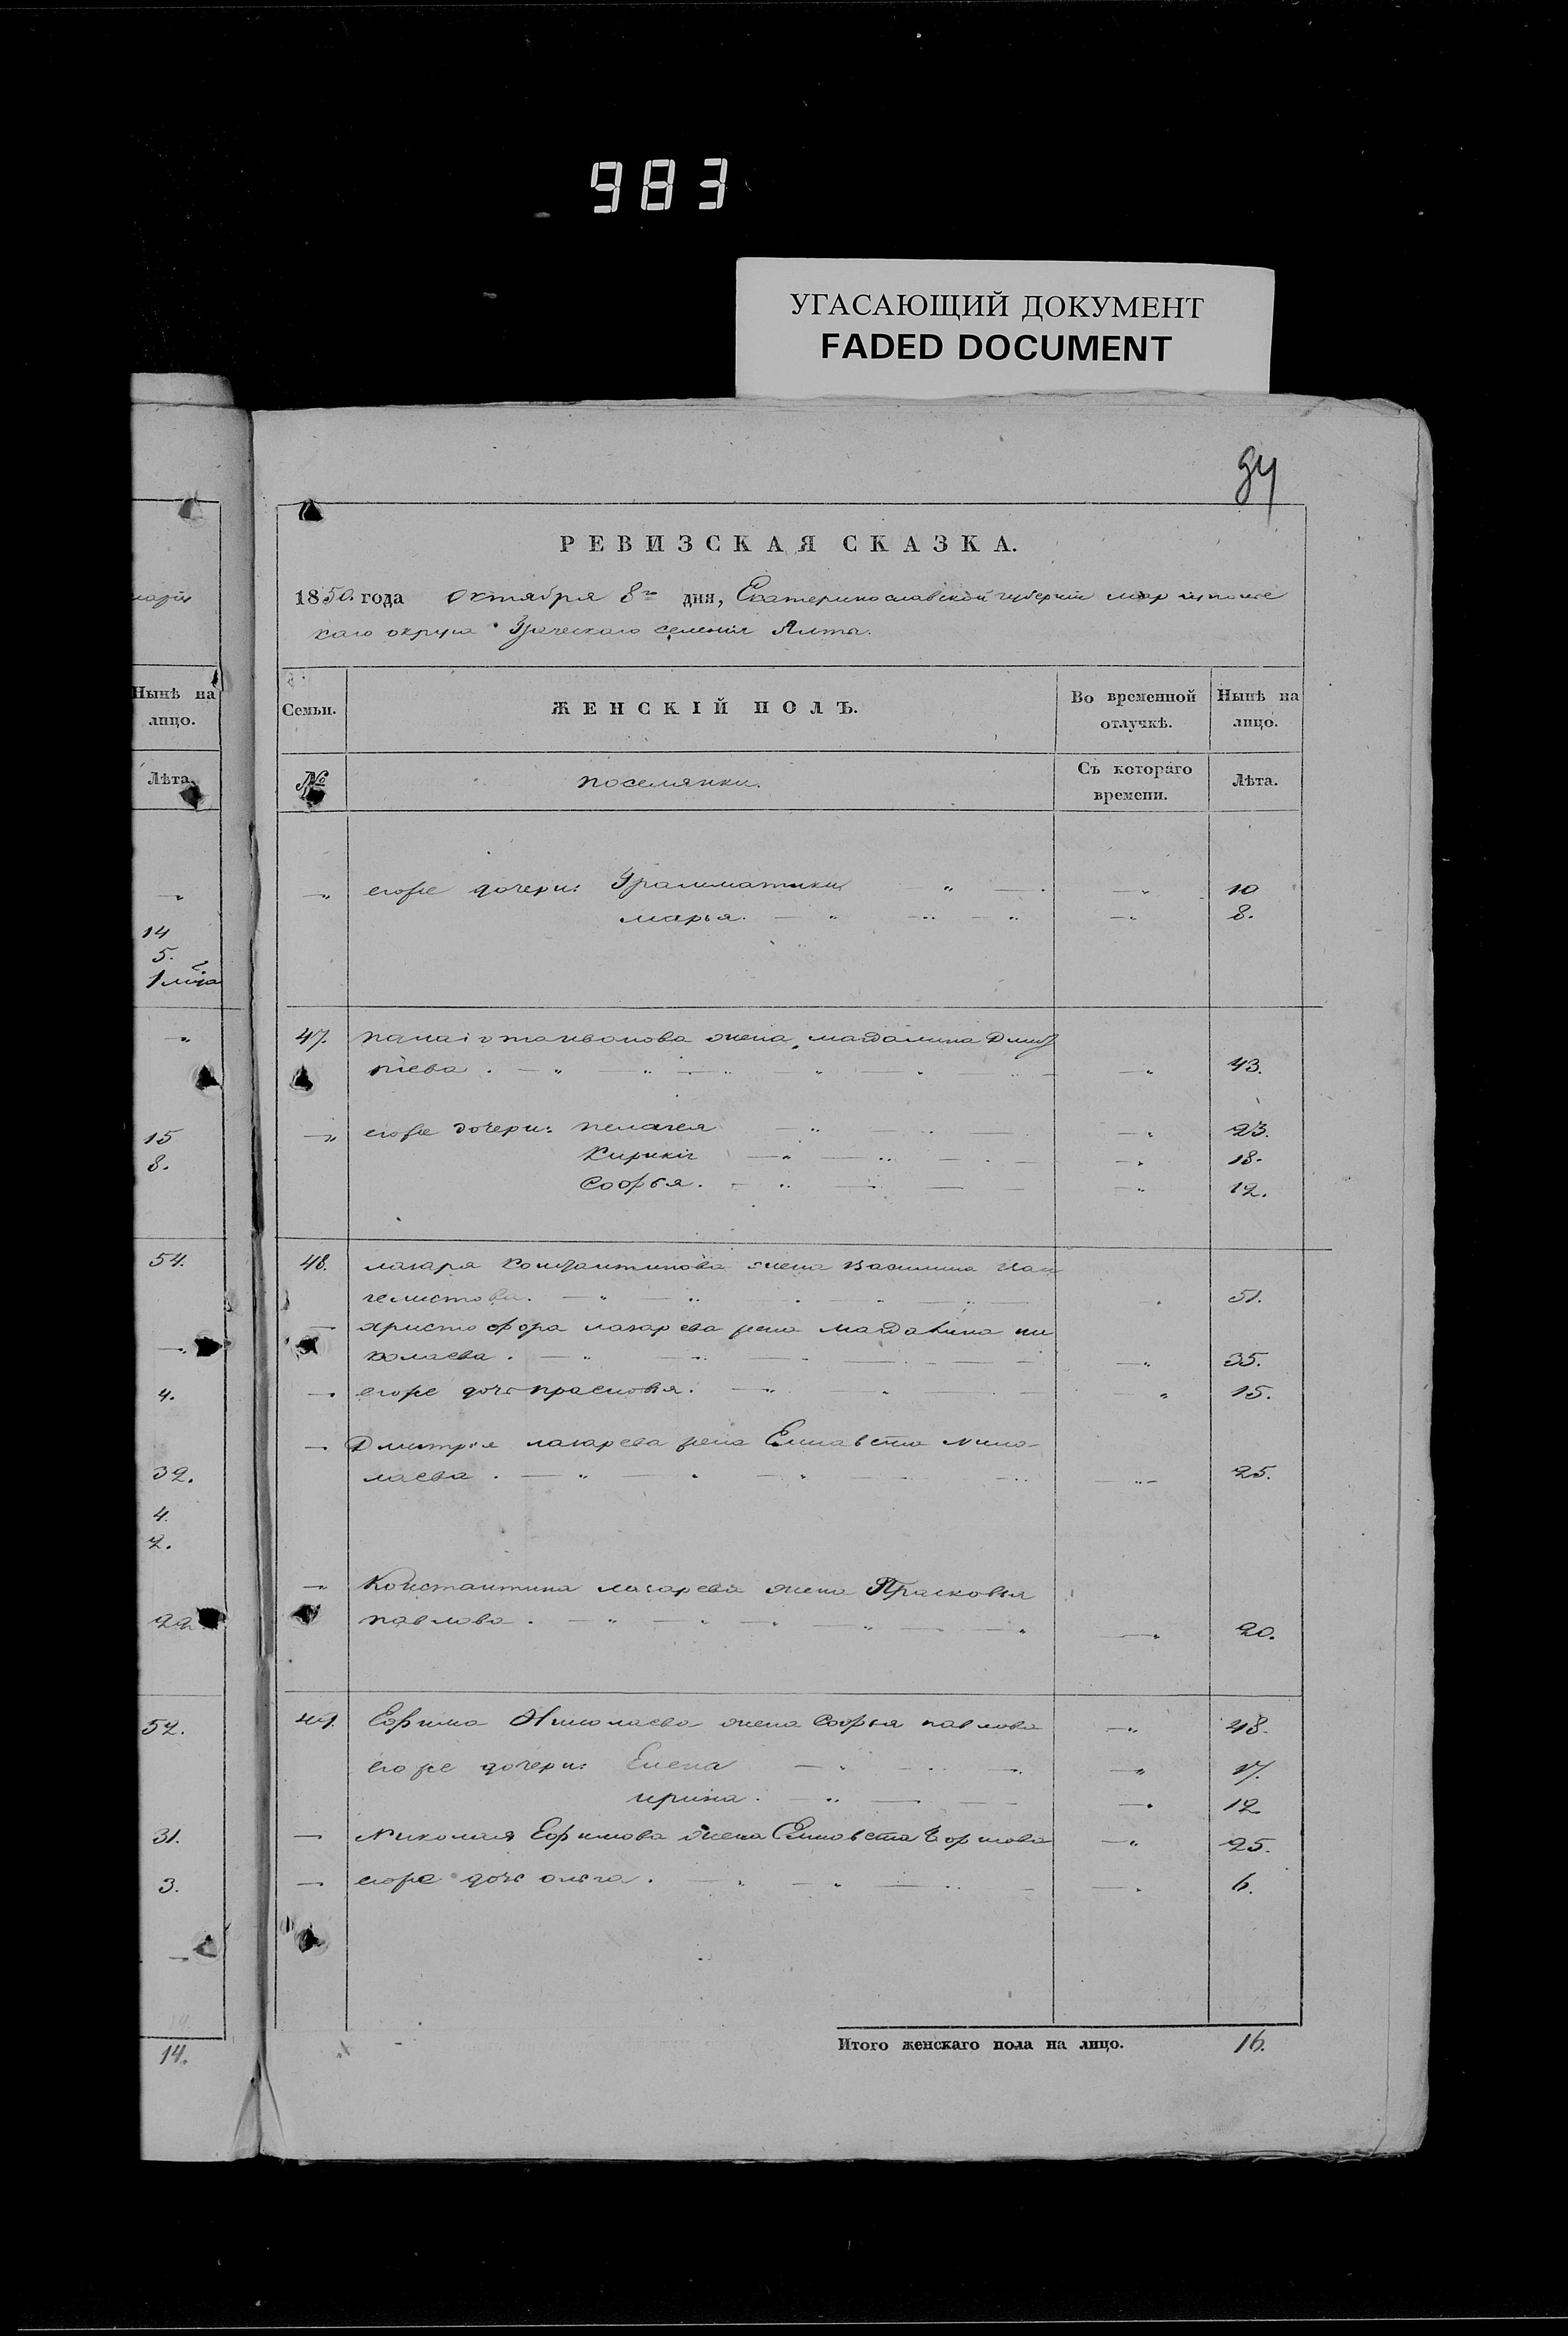 983
УГАСАЮЩИЙ ДОКУМЕНТ
FADED DOCUMENT
94
РЕВИЗСКАЯ СКАЗКА.
1850. года октября 8го дня, Екатеринославской губернии мариупольс
каго округа Греческаго селенія Ялта.
Нынѣ на лицо.
Лѣта.
14
5.
1 м͠ца
15
8.
54.
4.
32.
4.
2.
22
52.
31.
3.
14.
Семьи. ЖЕНСКІЙ ПОЛЪ. Во временной отлучкѣ. Нынѣ на лицо.
№ поселянки. Съ котораго времени. Лѣта.
егоже дочери: Грамматики 10
марья. 8.
47. жена магдалина Дмит
ріева. 43.
егоже дочери: пелагея 23.
Кирикіи 18.
Софья. 12.
48. лазаря Константинова жена Василина
51.
христофора лазарева жена магдалина ни
колаева. 35.
егоже дочь прасковья. 15.
Дмитрія лазарева жена Елисавета Нико-
лаева. 25.
Константина лазарева жена Прасковья
павлова. 20.
49. Ефима Николаева жена Софья павлова 48.
егоже дочери: Елена 17.
ирина. 12
Николая Ефимова жена Елисавета 25.
егоже дочь ольга. 6.
Итого женскаго пола на лицо. 16.